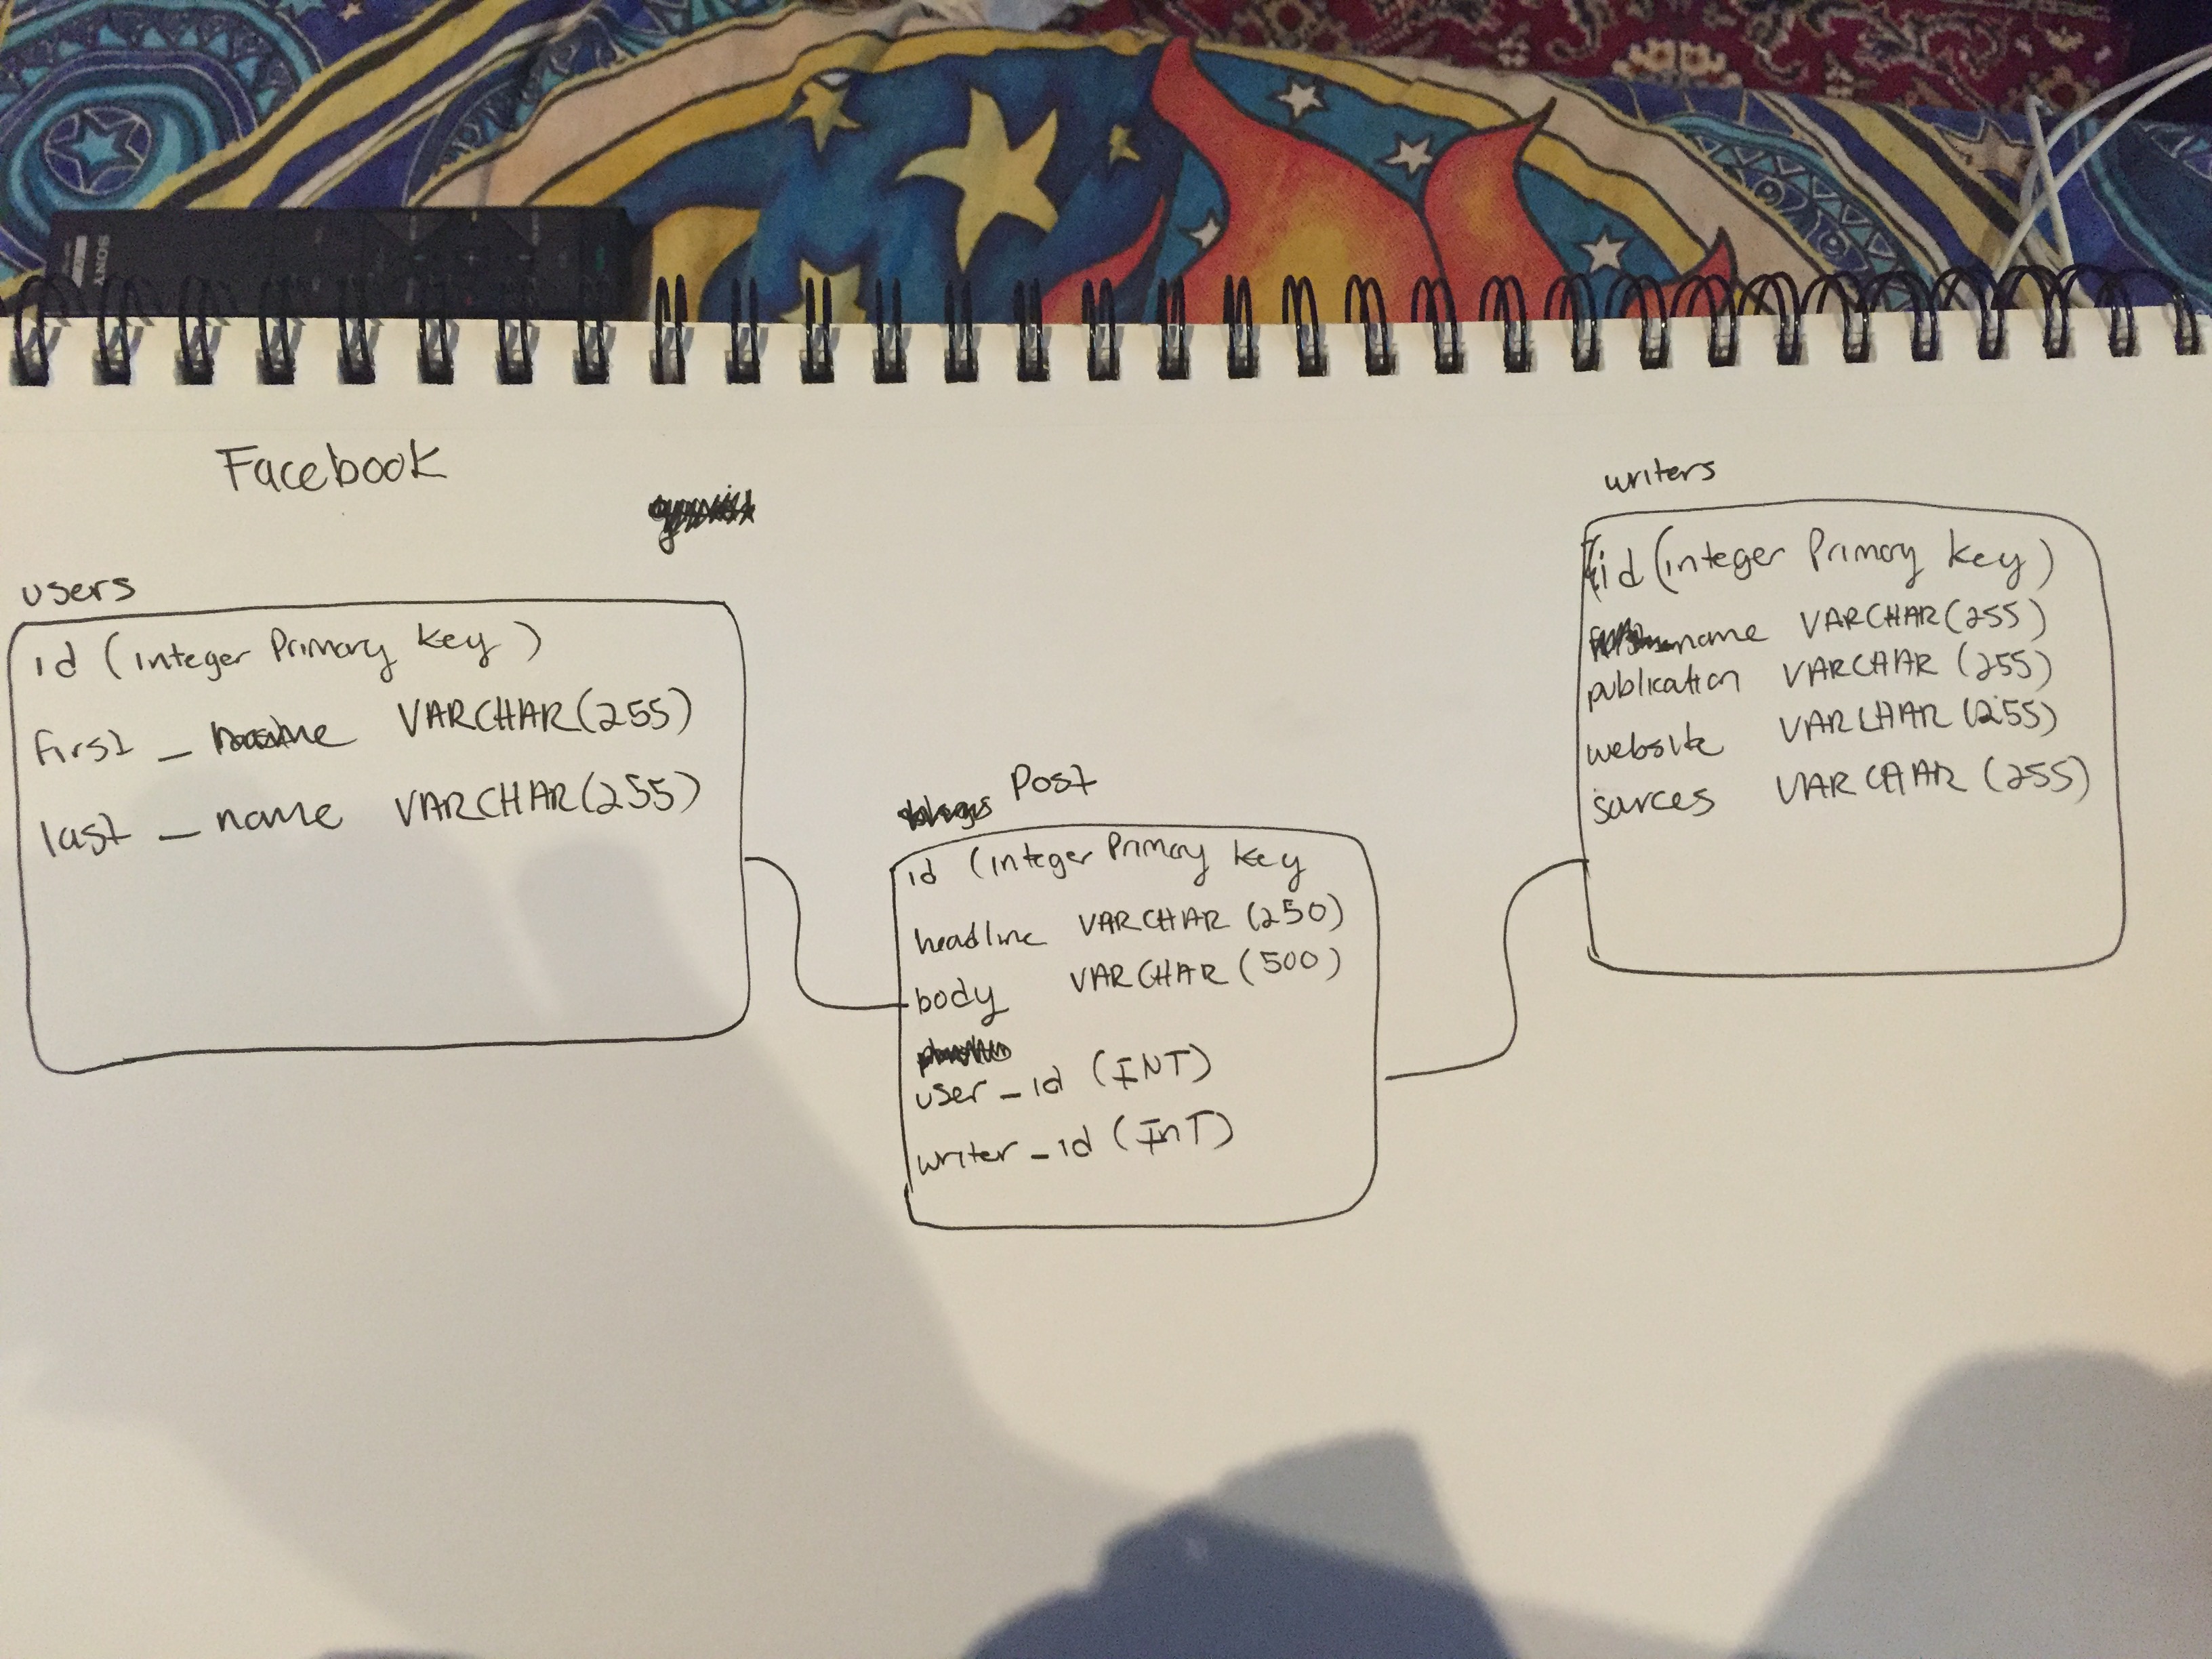 Facebook
users
id (integer Primary key)
first_name VARCHAR(255)
last_name VARCHAR(255)
Post
id (integer Primary key
headline VARCHAR (250)
body VARCHAR (500)
user_id (INT)
writer_id (INT)
writers
id (integer Primary key)
name VARCHAR(255)
publication VARCHAR (255)
website VARCHAR (255)
sources VARCHAR (255)
SONY